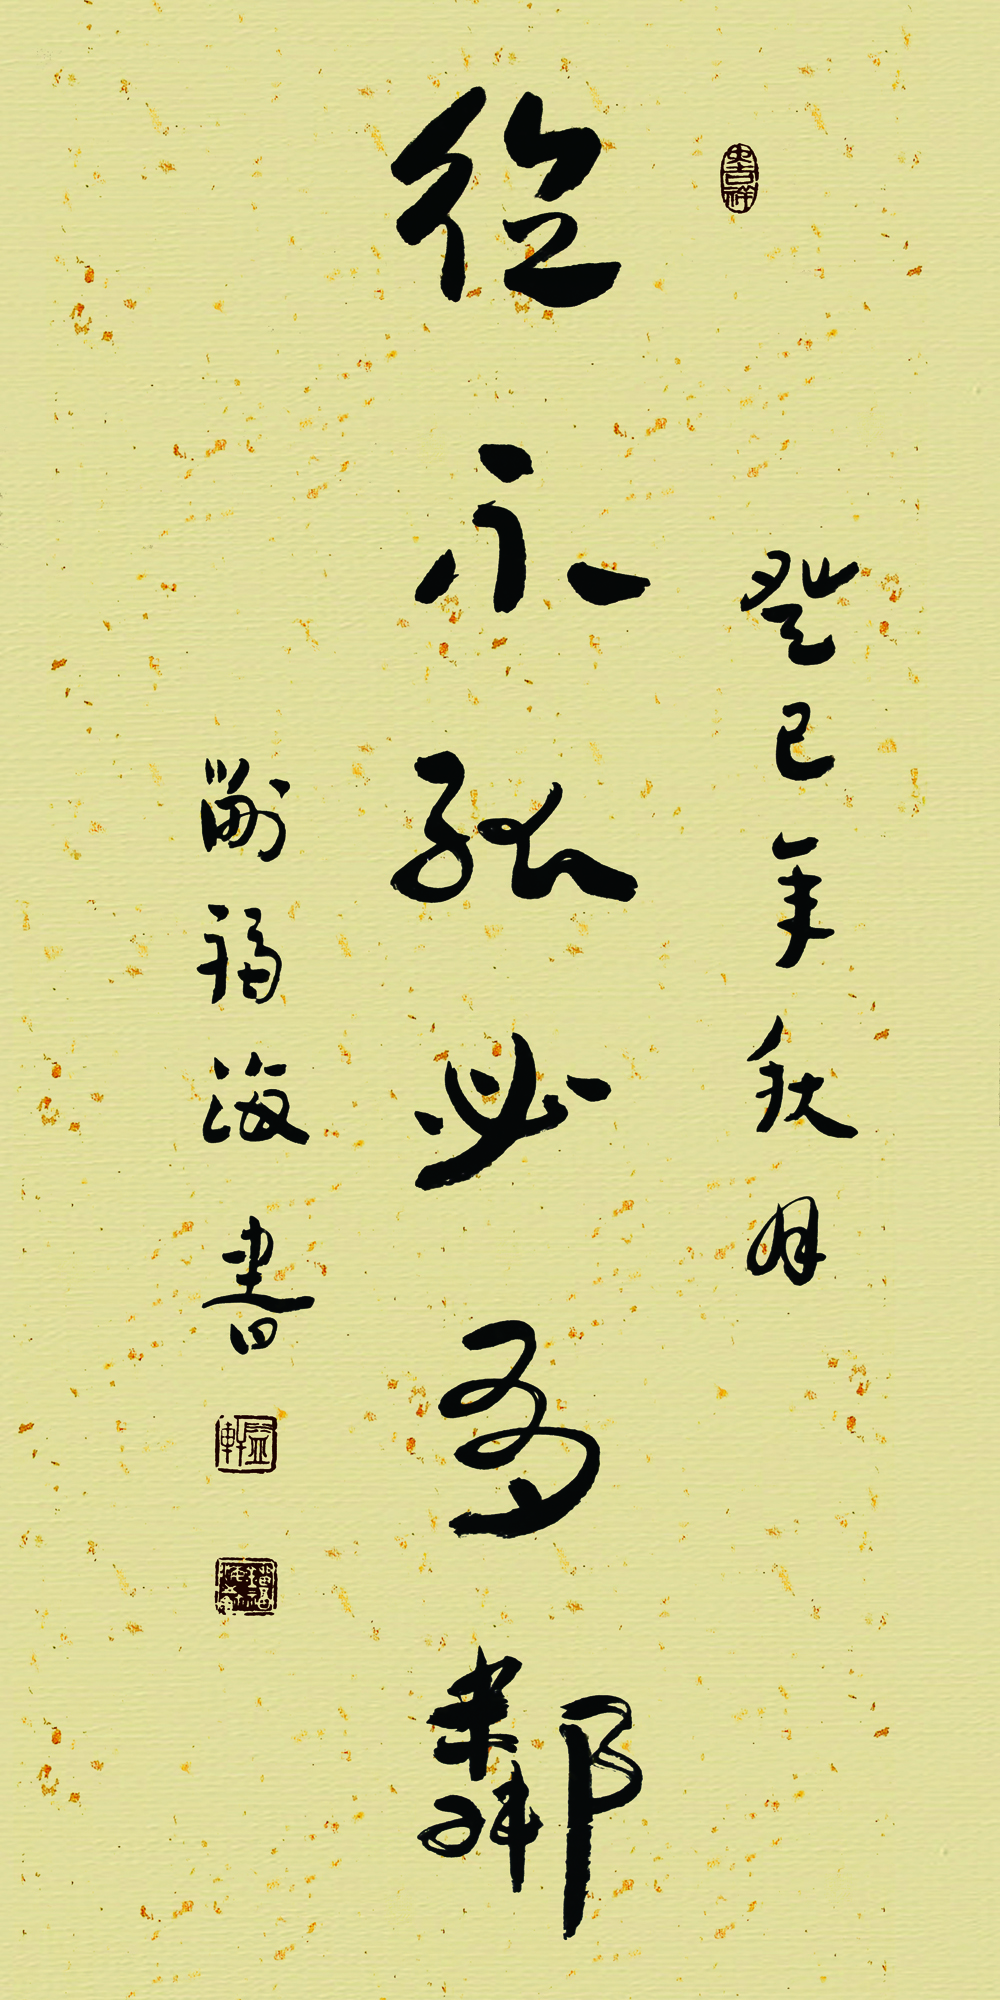 癸巳年秋月
德不孤必有鄰
劉福海書